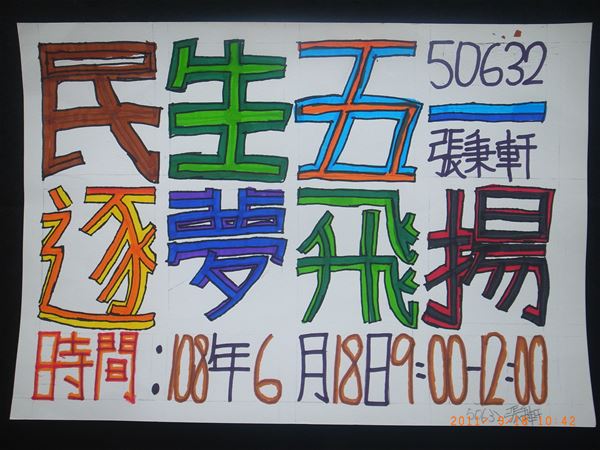 50632
民生五一
張秉軒
逐夢飛揚
時間:108年6月18日9:00-12:00
50632 張秉軒
10:42